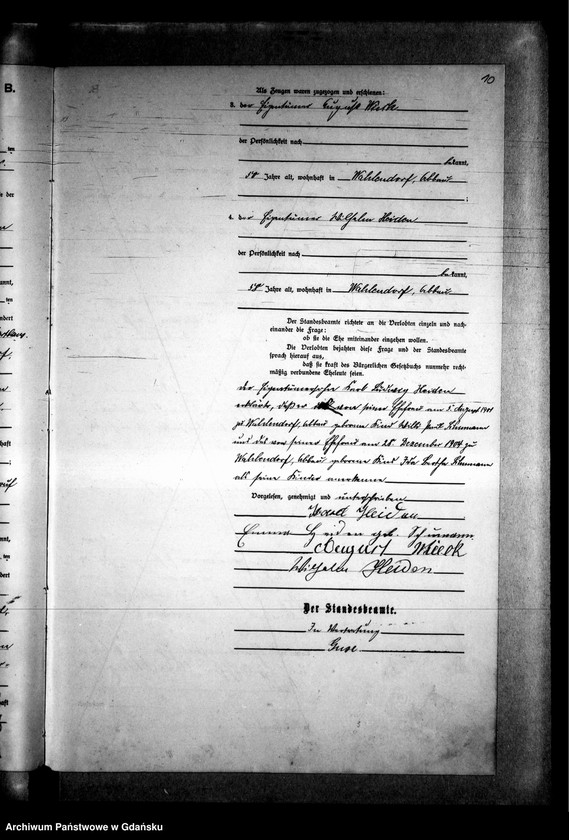 10
B.
Als Zeugen waren zugezogen und erschienen:
3. der Eigentümer August Wilk
der Persönlichkeit nach
bekannt,
Jahre alt, wohnhaft in Wahlendorf, Abbau
;
4. der Eigentümer Wilhelm Heiden
der Persönlichkeit nach
bekannt,
Jahre alt, wohnhaft in Wahlendorf, Abbau
Der Standesbeamte richtete an die Verlobten einzeln und nach-
einander die Frage:
ob sie die Ehe miteinander eingehen wollen.
Die Verlobten bejahten diese Frage und der Standesbeamte
sprach hierauf aus,
daß sie kraft des Bürgerlichen Gesetzbuchs nunmehr recht-
mäßig verbundene Eheleute seien.
der Eigentümersohn Karl Ludwig Heiden
erklärte, daß er von seiner Ehefrau am 5. August
zu Wahlendorf, Abbau geborene Kind
und das von seiner Ehefrau am 28 Dezember 1904 zu
Wahlendorf, Abbau geborene Kind Ida Bertha
als seine Kinder anerkenne
Vorgelesen, genehmigt und unterschrieben
Karl Heiden
Emma Heiden geb. Schumann
August Willk
Wilhelm Heiden
Der Standesbeamte.
In Vertretung
Guse
Archiwum Państwowe w Gdańsku